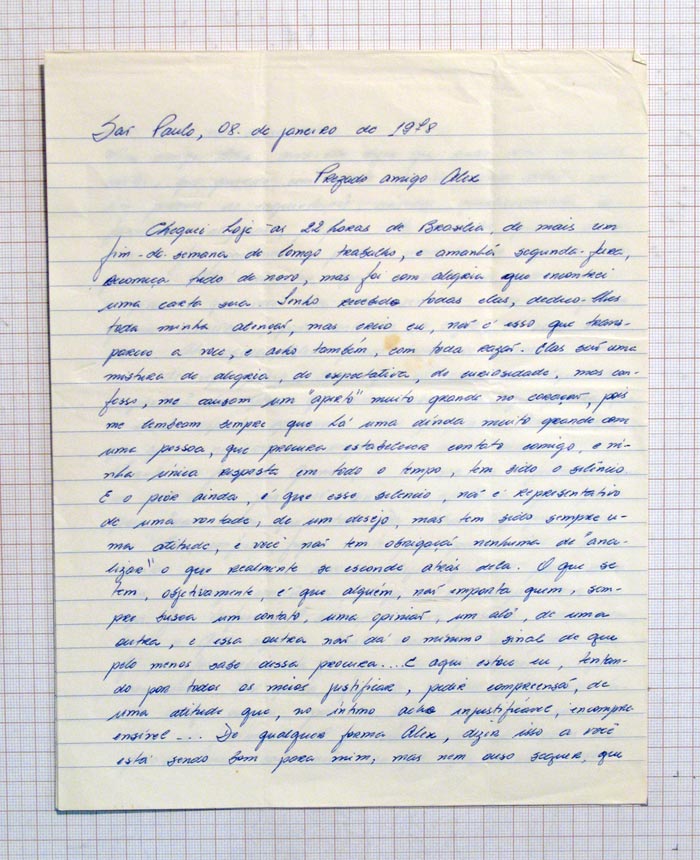 São Paulo, 08. de janeiro de 1978
Prezado amigo Alex
Cheguei hoje às 22 horas de Brasília, de mais um
fim-de-semana de longo trabalho, e amanhã segunda-feira,
recomeça tudo de novo, mas foi com alegria que encontrei
uma carta sua. Tenho recebido todas elas, dedico-lhes
toda minha atenção, mas creio eu, não é isso que trans-
parece a você, e acho também, com toda razão. Elas são uma
mistura de alegria, de expectativa, de curiosidade, mas con-
fesso, me causam um "aperto" muito grande no coração, pois
me lembram sempre que há uma dívida muito grande com
uma pessoa, que procura estabelecer contato comigo, e mi-
nha única resposta em todo o tempo, tem sido o silêncio.
E o pior ainda, é que esse silencio, não é representativo
de uma vontade, de um desejo, mas tem sido sempre u-
ma atitude, e você não tem obrigação nenhuma de "ana-
lizar" o que realmente se esconde atrás dela. O que se
tem, objetivamente, é que alguém, não importa quem, sem-
pre busca um contato, uma opinião, um alô, de uma
outra, e essa outra não dá o mínimo sinal de que
pelo menos sabe dessa procura.... E aqui estou eu, tentan-
do por todos os meios justificar, pedir compreensão, de
uma atitude que, no íntimo acho injustificável, incompre
ensível.... De qualquer forma Alex, dizer isso a você
está sendo bom para mim, mas nem ouso sequer, que